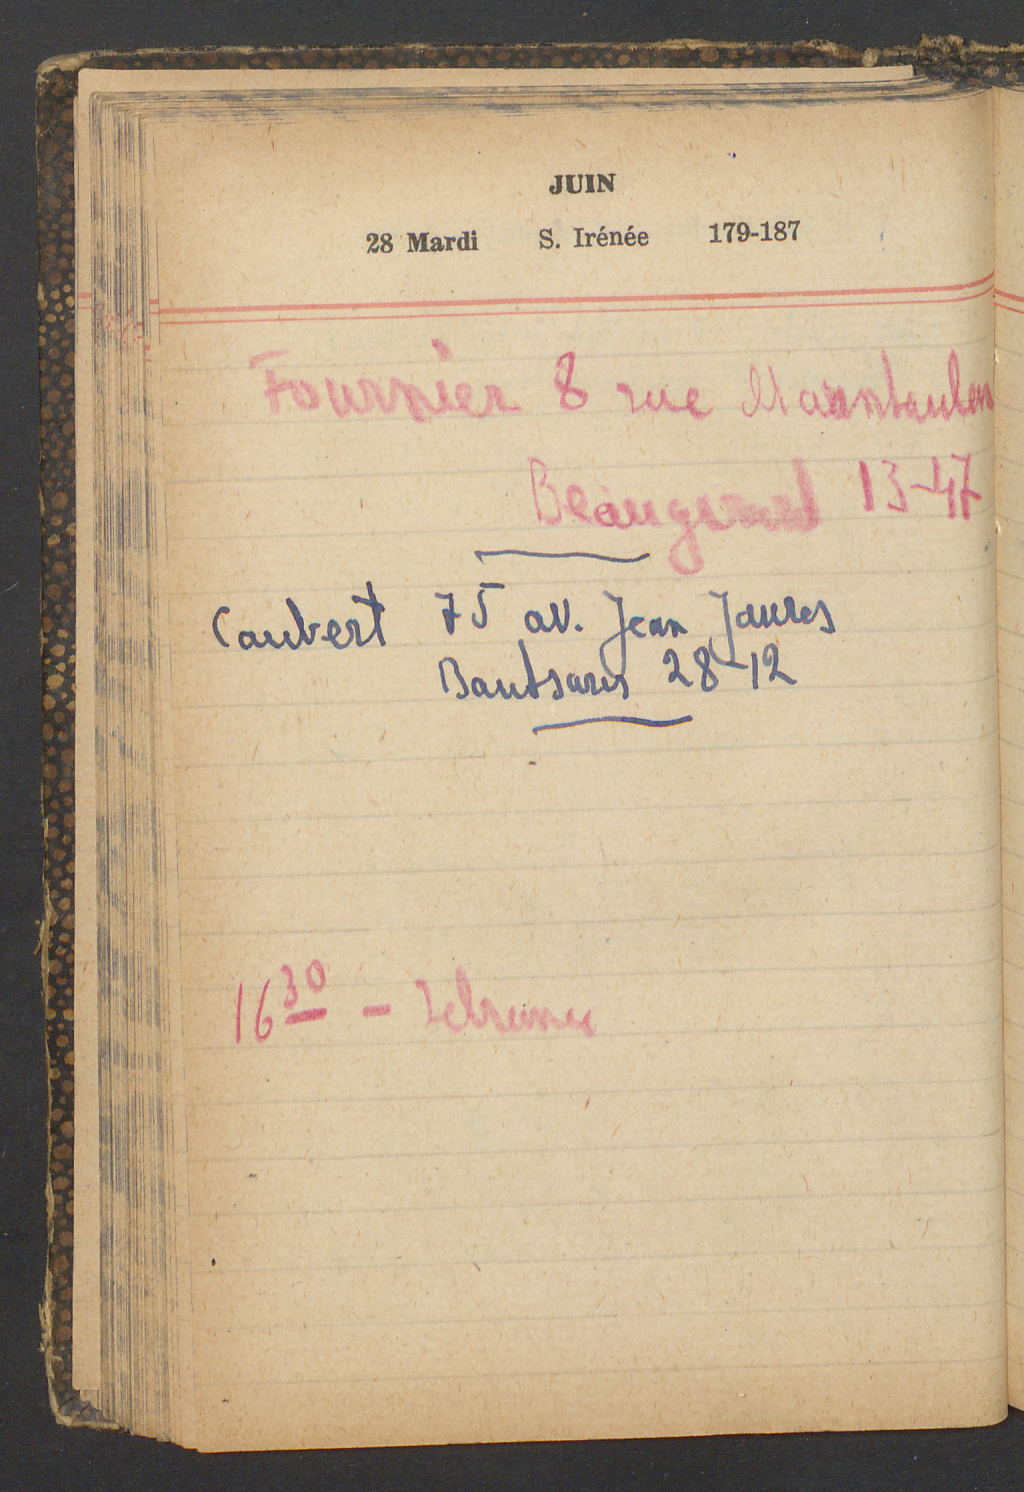 JUIN
28 Mardi S. Irénée 179-187
Fournier 8 rue
13-47
Caubert 75 av. Jean Jaures
28-12
16 30 -